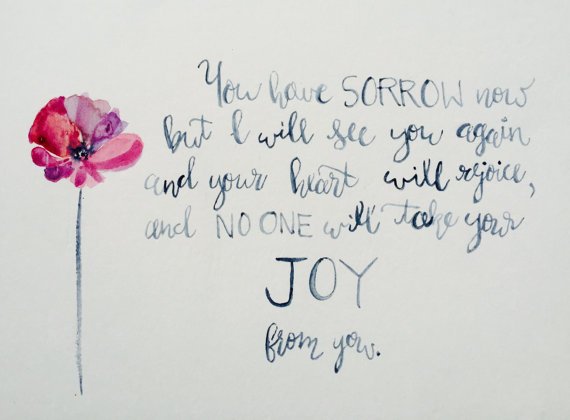 You have SORROW now
but I will see you again
and your heart will rejoice,
and NO ONE will take your
JOY
from you.